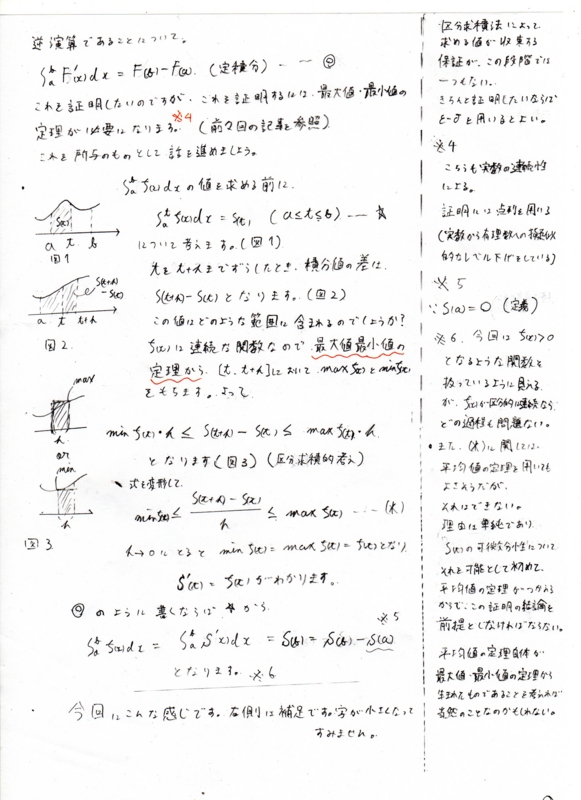 逆演算であることについて。
∫ₐᵇ F'(x)dx = F(b)-F(a) (定積分) ‥‥ ◎
これを証明したいのですが、これを証明するには、最大値・最小値の
定理が必要になります。※4 (前々回の記事を参照)
これを所与のものとして話を進めましょう。
∫ₐᵇ f(x)dx の値を求める前に、
∫ₐᵗ f(x)dx = S(t) (a≦t≦b) ‥‥ ☆
について考えます。(図1)
S(t)
a t b
図1
tをt+hまでずらしたとき、積分値の差は、
S(t+h)-S(t) となります。(図2)
S(t+h)
-S(t)
a t t+h
図2.
この値はどのような範囲に含まれるのでしょうか?
f(x)は連続な関数なので、最大値最小値の
定理から、[t, t+h]において max f(x) と min f(x)
をもちます。よって、
max
h
or
min
h
図3.
min f(x)・h ≦ S(t+h)-S(t) ≦ max f(x)・h
となります(図3) (区分求積的考え)
式を変形して、
min f(x) ≦ (S(t+h)-S(t))/h ≦ max f(x) ‥‥ (木)
h→0にとると min f(x) = max f(x) = f(t) となり、
S'(t) = f(t) がわかります。
◎のように書くならば ☆から、
∫ₐᵇ f(x)dx = ∫ₐᵇ S'(x)dx = S(b) = S(b)-S(a) ※5
となります。※6
今回はこんな感じです。右側は補足です。字が小さくなって
すみません。
区分求積法によって
求める値が収束する
保証が、この段階では
一つもない。
きちんと証明したいならば
ε-δを用いるとよい。
※4
こちらも実数の連続性
による。
証明には点列を用いる
(実数から有理数への
的なレベル下げをしている)
※5
∵ S(a)=0 (定義)
※6. 今回はf(x)>0
となるような関数を
扱っているように見える
が、f(x)が区分的に連続なら
どの過程も問題ない。
・また、(木)に関しては、
平均値の定理を用いても
よさそうだが、
それはできない。
理由は単純であり、
S(t)の可微分性について
それを可能として初めて、
平均値の定理がつかえる
からで、この証明の結論を
前提としなければならない。
平均値の定理自体が
最大値・最小値の定理から
生まれたものであることを考えれば
当然のことなのかもしれない。